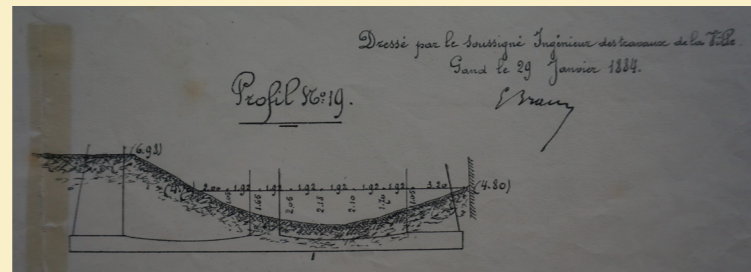 Dressé par le soussigné Ingénieur des travaux de la Ville.
Gand le 29 Janvier 1884.
Profil No: 19.
(6.92)
2.00 1.92 1.92 1.92 1.92 1.92 3.20 (4.80)
1.66 2.06 2.10